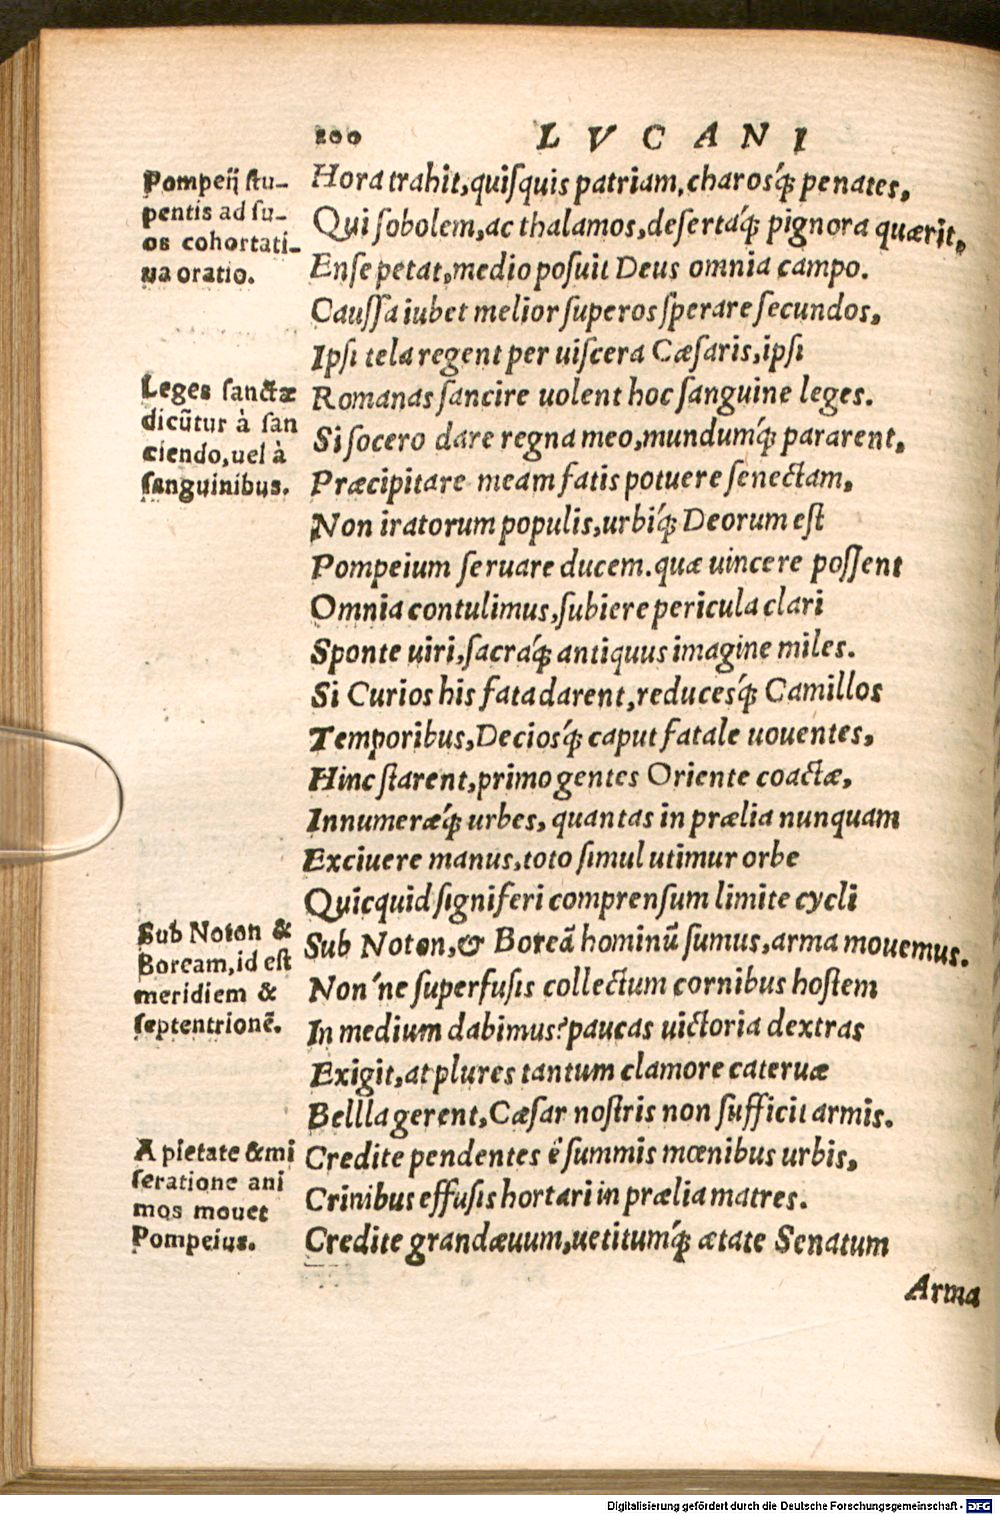 200 LVCANI
Pompeij ſtu-
pentis ad ſu-
os cohortati-
ua oratio.
Hora trahit, quiſquis patriam, charosq́; penates,
Qui ſobolem, ac thalamos, desertaq́; pignora quærit,
Enſe petat, medio poſuit Deus omnia campo.
Cauſſa iubet melior ſuperos ſperare ſecundos,
Ipſi tela regent per uiſcera Cæſaris, ipſi
Leges ſanctæ
dicũtur à ſan
ciendo, uel à
ſanguinibus.
Romanas ſancire uolent hoc ſanguine leges.
Si ſocero dare regna meo, mundumq́; pararent,
Præcipitare meam fatis potuere ſenectam,
Non iratorum populis, urbiq́; Deorum eſt
Pompeium ſeruare ducem. quæ uincere poſſent
Omnia contulimus, ſubiere pericula clari
Sponte uiri, ſacraq́; antiquus imagine miles.
Si Curios his fata darent, reducesq́; Camillos
Temporibus, Deciosq́; caput fatale uouentes,
Hinc ſtarent, primo gentes Oriente coactæ,
Innumeræq́; urbes, quantas in prælia nunquam
Exciuere manus, toto ſimul utimur orbe
Quicquid ſigniferi comprenſum limite cycli
Sub Noton &
Boream, id eſt
meridiem &
ſeptentrionẽ.
Sub Noton, & Boreã hominũ ſumus, arma mouemus.
Non'ne ſuperfuſis collectum cornibus hoſtem
In medium dabimus? paucas uictoria dextras
Exigit, at plures tantum clamore cateruæ
Bellla gerent, Cæſar noſtris non ſufficit armis.
A pietate & mi
ſeratione ani
mos mouet
Pompeius.
Credite pendentes è ſummis mœnibus urbis,
Crinibus effuſis hortari in prælia matres.
Credite grandæuum, uetitumq́; ætate Senatum
Arma
Digitalisierung gefördert durch die Deutsche Forschungsgemeinschaft - DFG